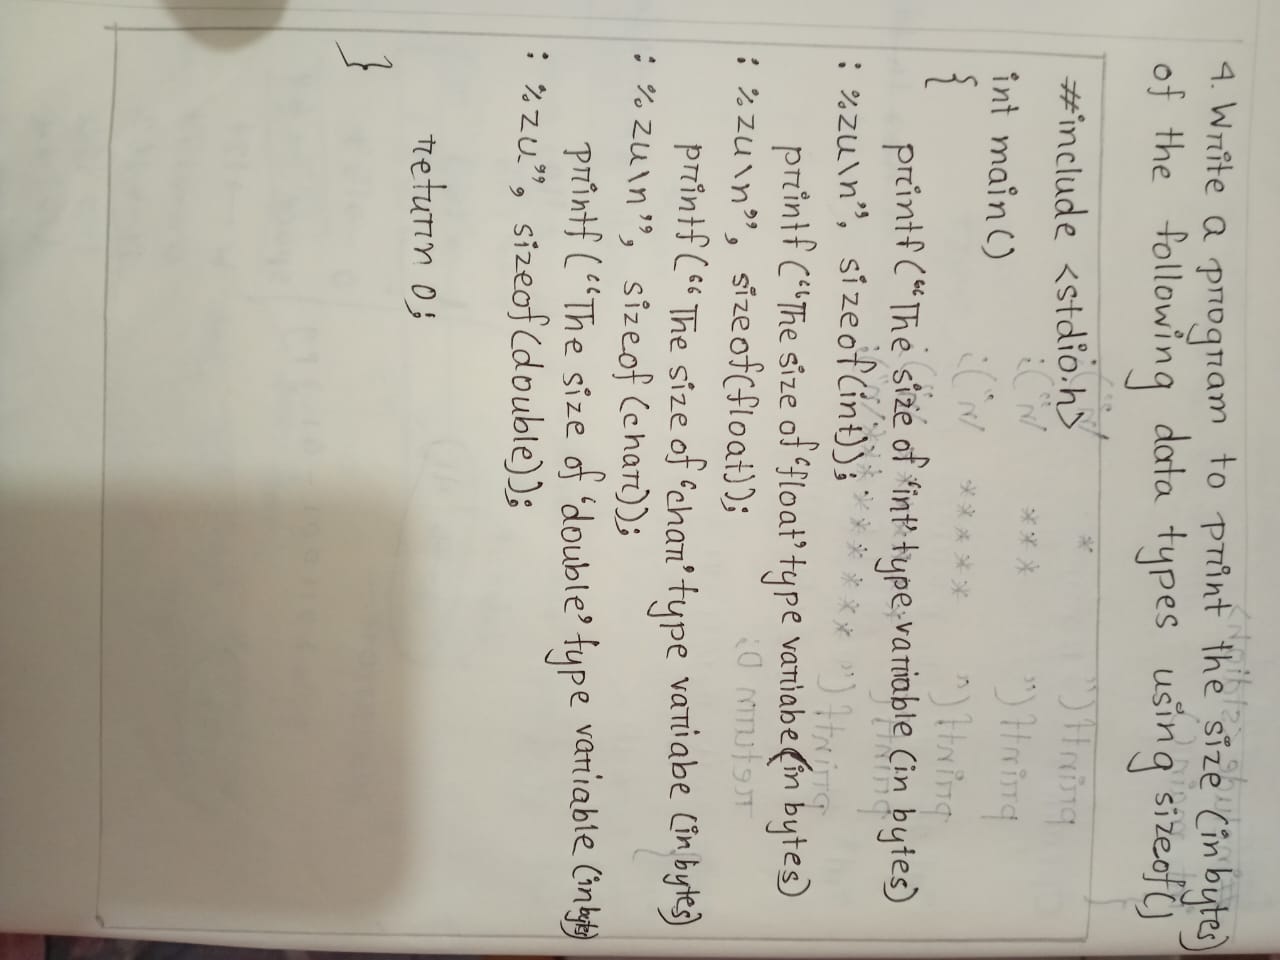 4. Write a program to print the size (in bytes)
of the following data types using sizeof()
#include <stdio.h>
int main()
{
printf("The size of 'int' type variable (in bytes)
: %zu\n", sizeof(int));
printf("The size of 'float' type variabe (in bytes)
: %zu\n", sizeof(float));
printf("The size of 'char' type variabe (in bytes)
: %zu\n", sizeof(char));
printf("The size of 'double' type variable (in bytes)
: %zu", sizeof(double));
return 0;
}